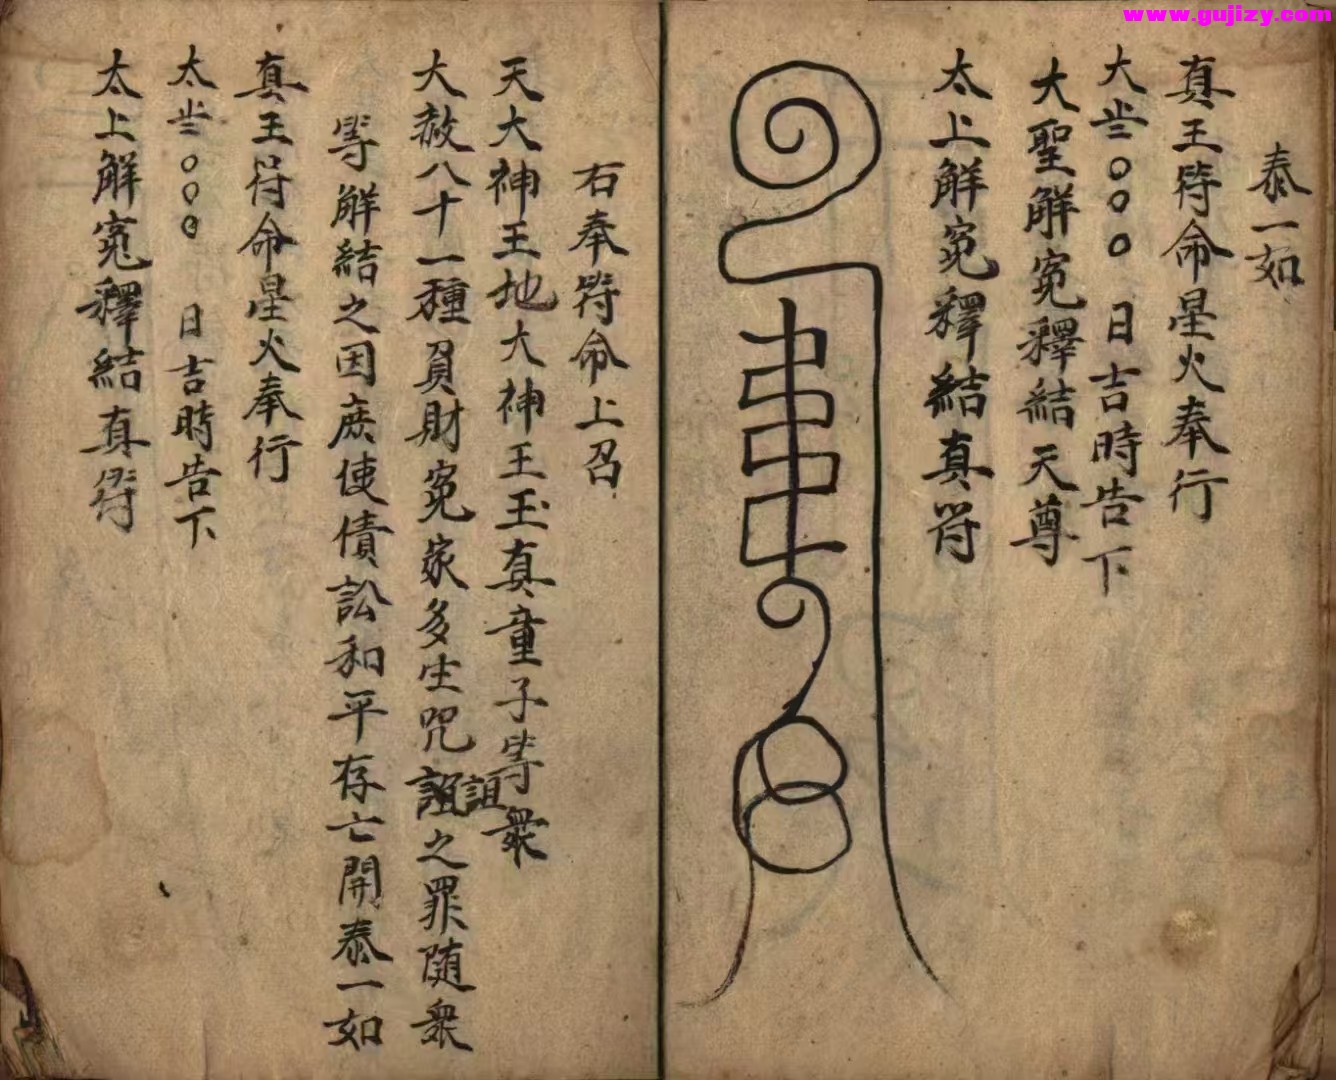 www.gujizy.com
泰一如
真王符命星火奉行
大岁〇〇〇日吉時告下
大聖解冤釋結天尊
太上解冤釋結真符
右奉符命上召
天大神王地大神王玉真童子等衆
大赦八十一種負財冤家多生咒詛詛之罪随衆
等解結之因庶使債訟和平存亡開泰一如
真王符命星火奉行
太岁〇〇〇日吉時告下
太上解冤釋結真符